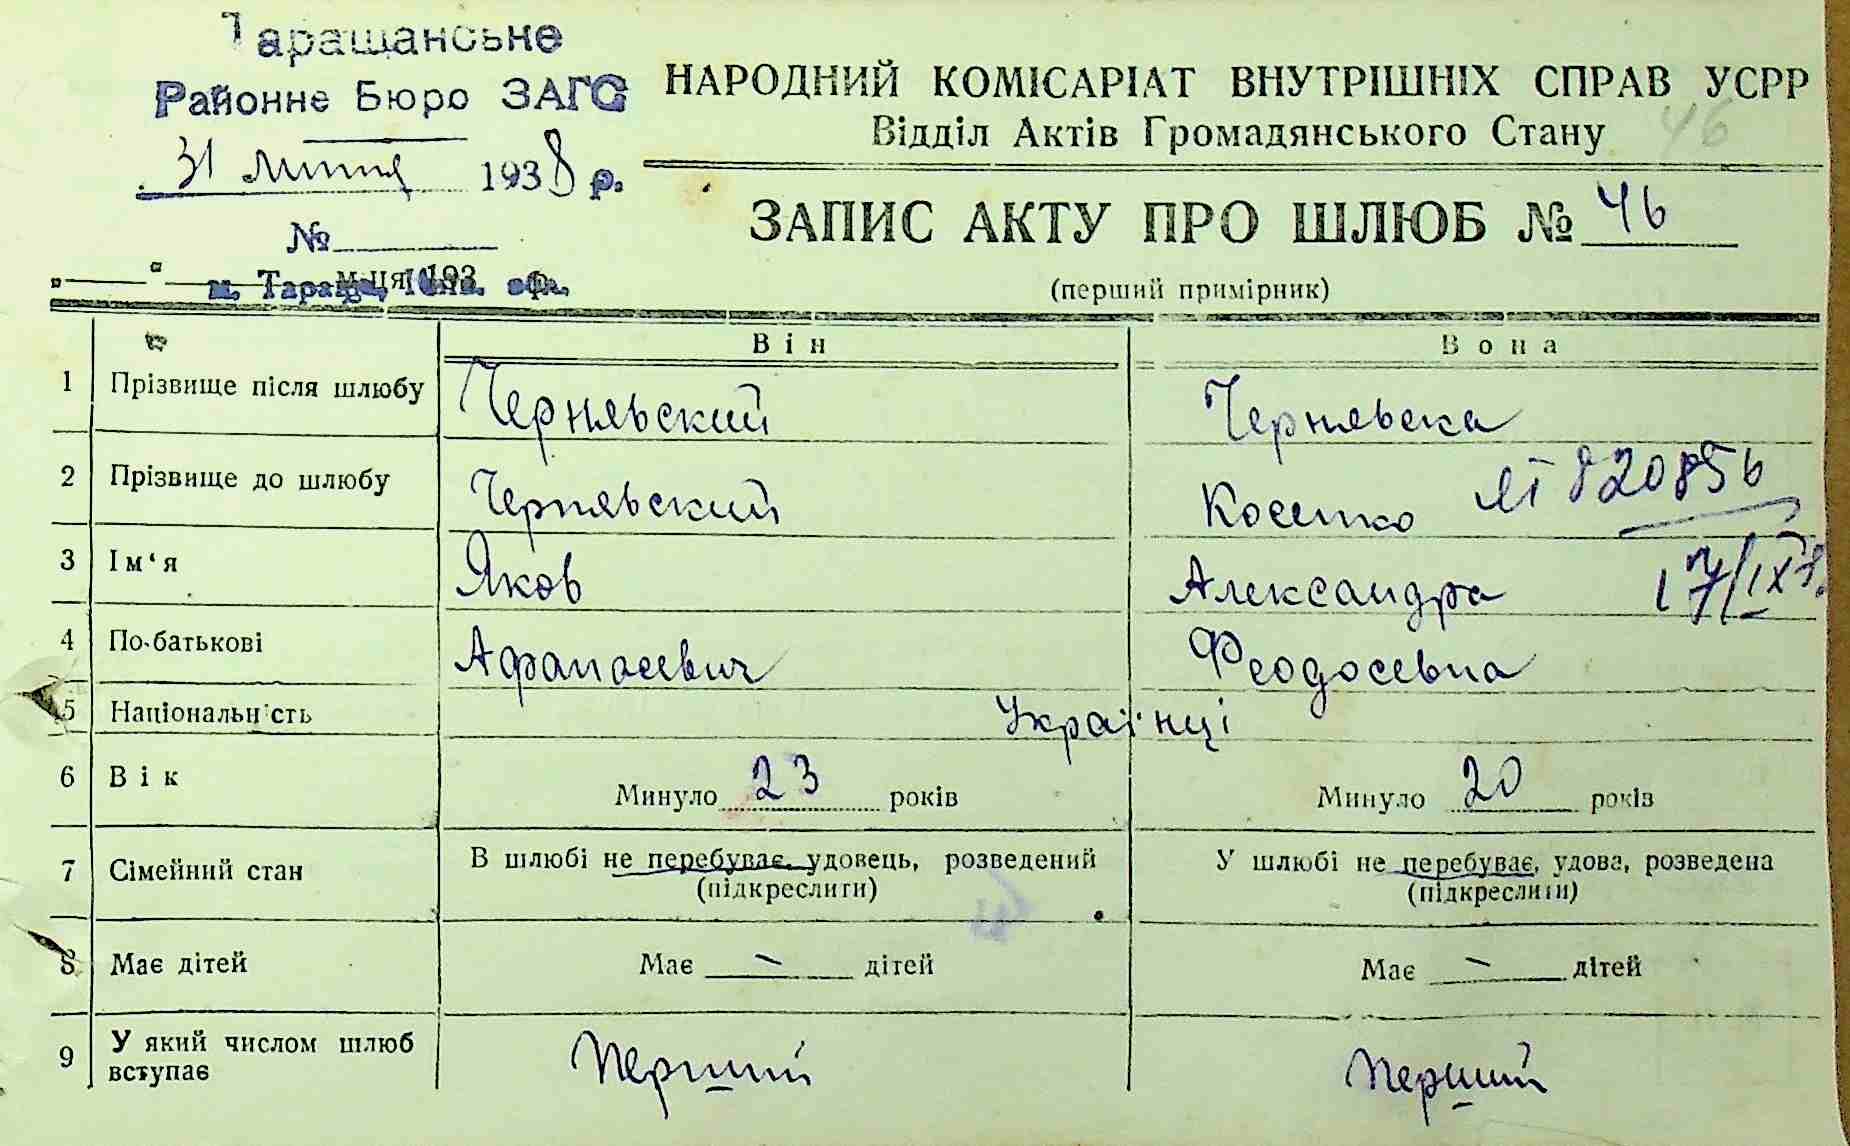 Таращанське
Районне Бюро ЗАГС
31 Липня 1938 р.
№
м. Тараща,
м-ця 193
НАРОДНИЙ КОМІСАРІАТ ВНУТРІШНІХ СПРАВ УСРР
Відділ Актів Громадянського Стану
46
ЗАПИС АКТУ ПРО ШЛЮБ № 46
(перший примірник)
Він Вона
1 Прізвище після шлюбу Чернявский Чернявска
2 Прізвище до шлюбу Чернявский Косенко ЯТ 820856
3 Ім'я Яков Александра 17/IX
4 По-батькові Афанасевич Феодосевна
5 Національність Українці
6 Вік Минуло 23 років Минуло 20 років
7 Сімейний стан В шлюбі не перебуває, удовець, розведений У шлюбі не перебуває, удова, розведена
(підкреслити) (підкреслити)
8 Має дітей Має — дітей Має — дітей
9 У який числом шлюб вступає Перший Перший